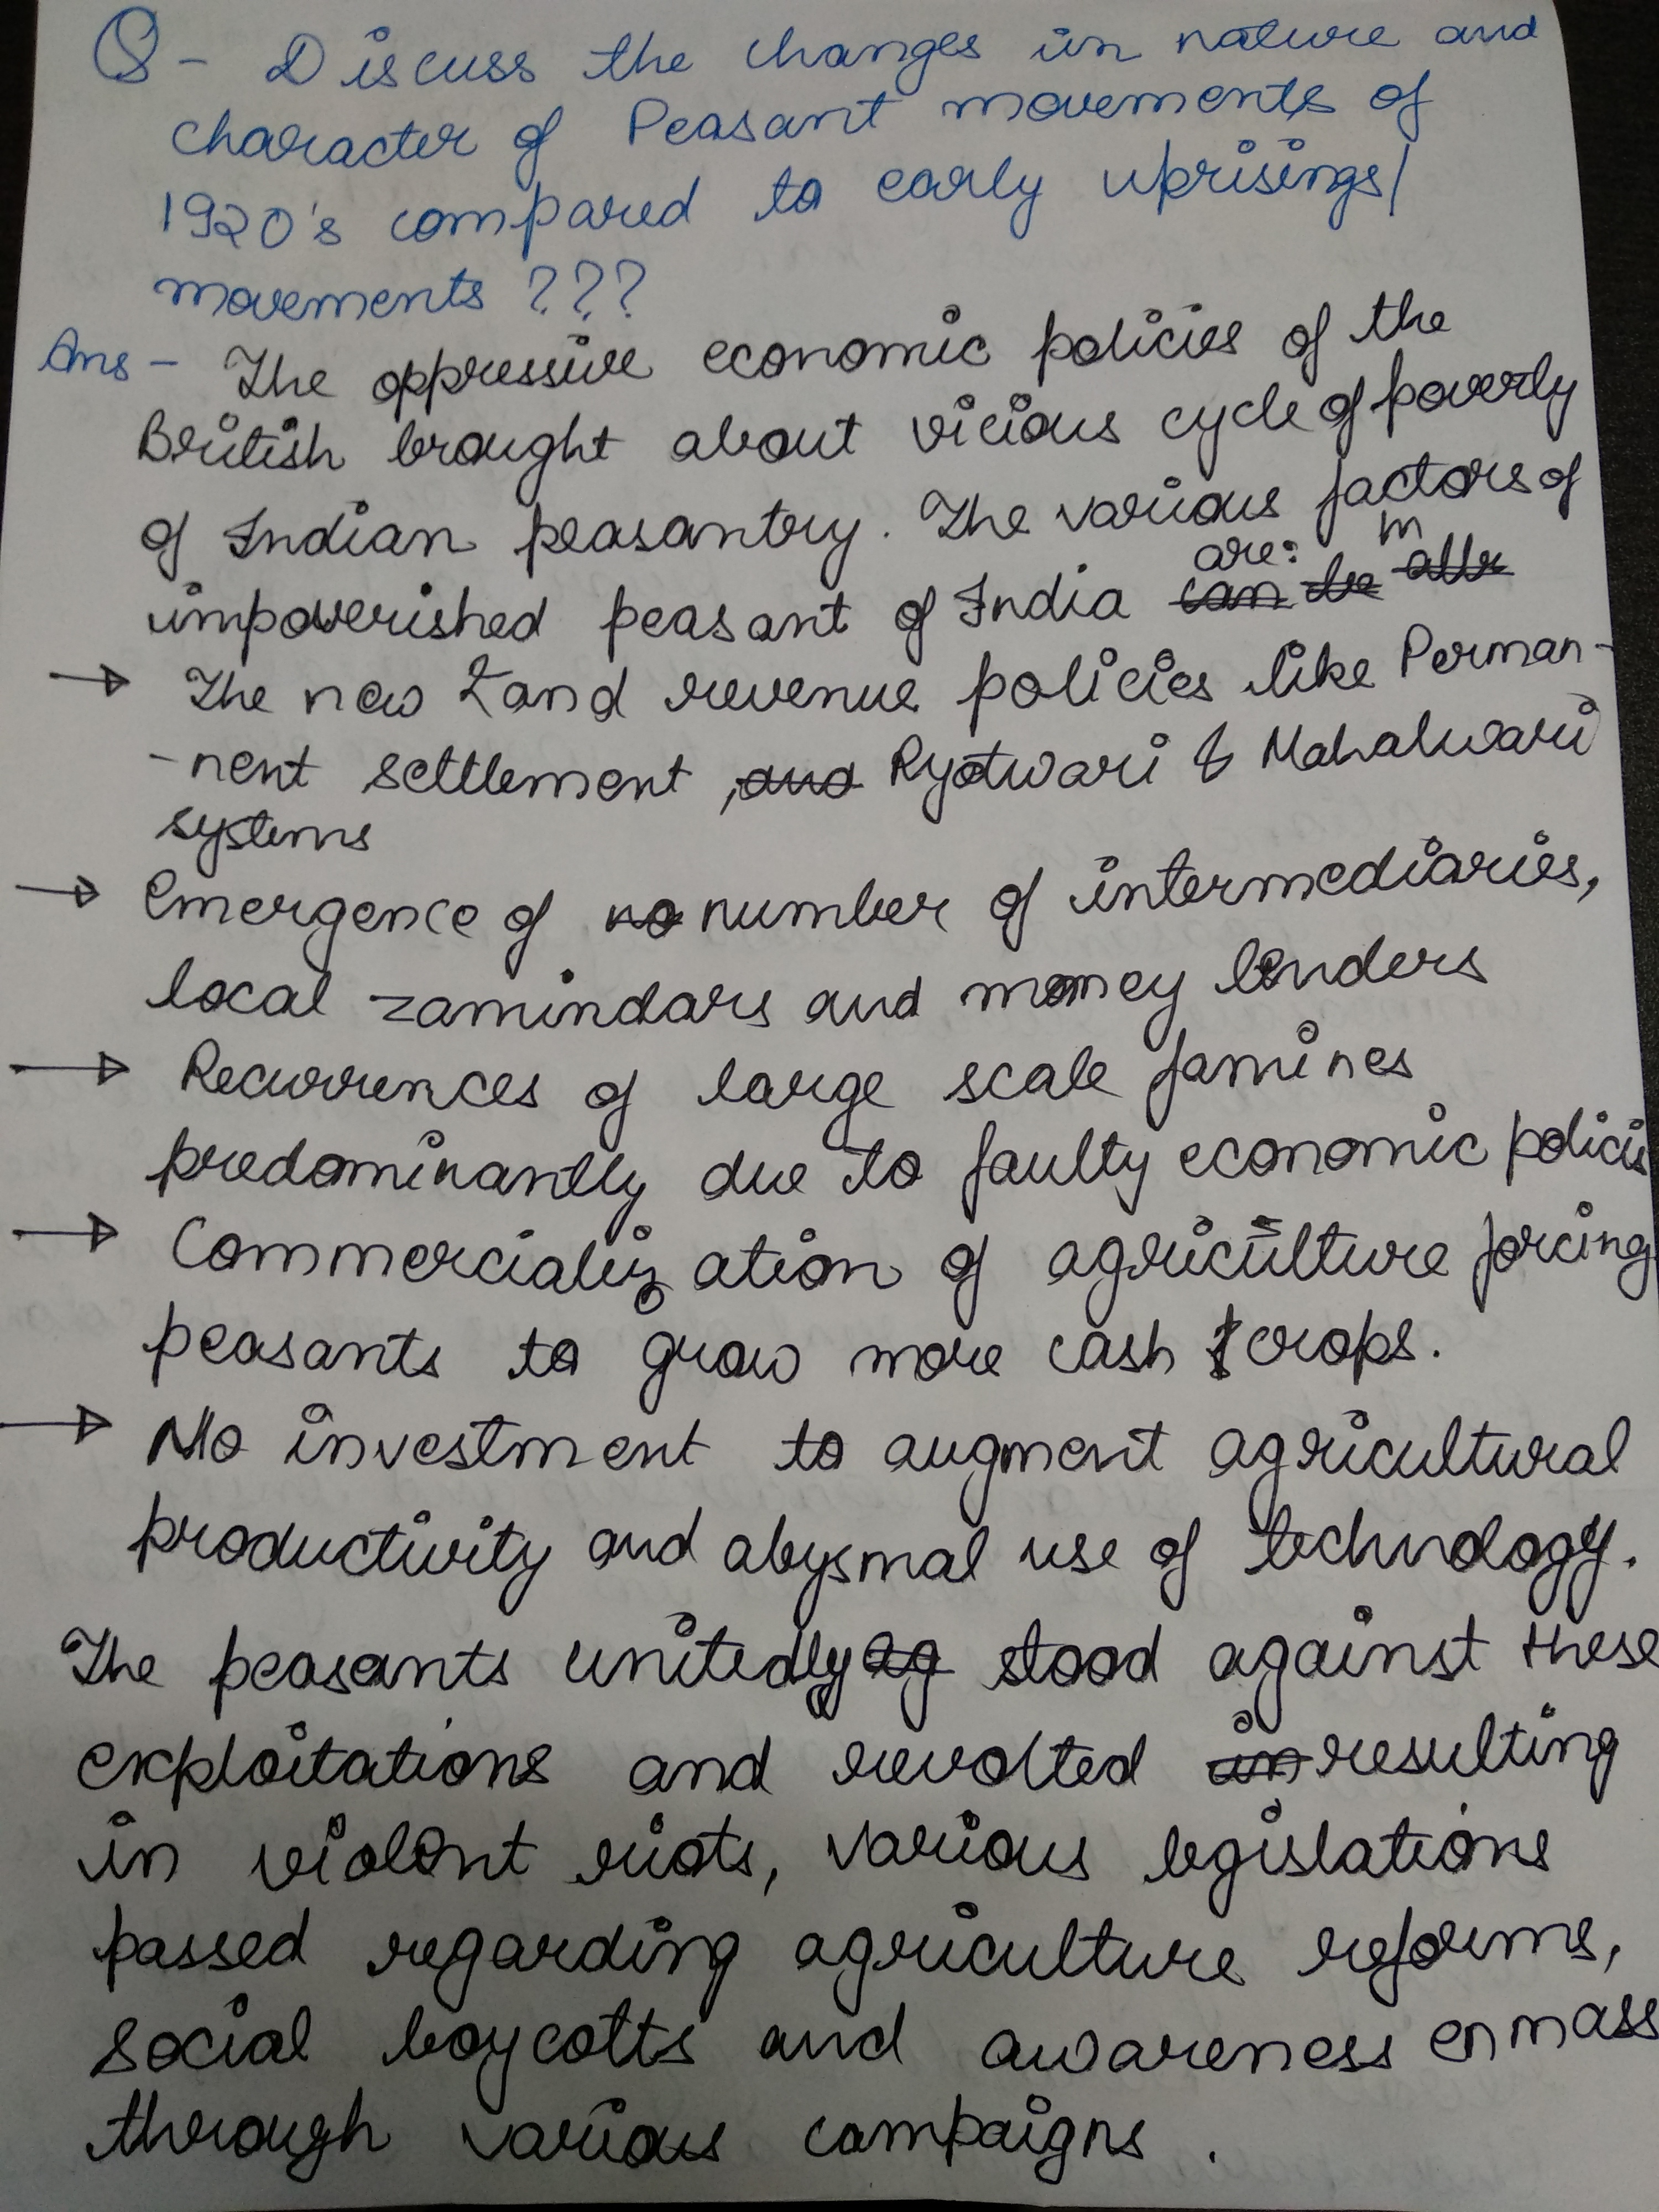 Q - Discuss the changes in nature and
character of Peasant movements of
1920's compared to early uprisings/
movements ???
Ans - The oppressive economic policies of the
British brought about vicious cycle of poverty
of Indian peasantry. The various factors of
impoverished peasant of India are:
→ The new Land revenue policies like Perman-
-nent settlement, Ryotwari & Mahalwari
systems
→ Emergence of number of intermediaries,
local zamindars and money lenders
→ Recurrences of large scale famines
predominantly due to faulty economic policis
→ Commercialization of agriculture forcing
peasants to grow more cash crops.
→ No investment to augment agricultural
productivity and abysmal use of technology.
The peasants unitedly stood against these
exploitations and revolted resulting
in violent riots, various legislations
passed regarding agriculture reforms,
social boycotts and awareness enmass
through various campaigns .